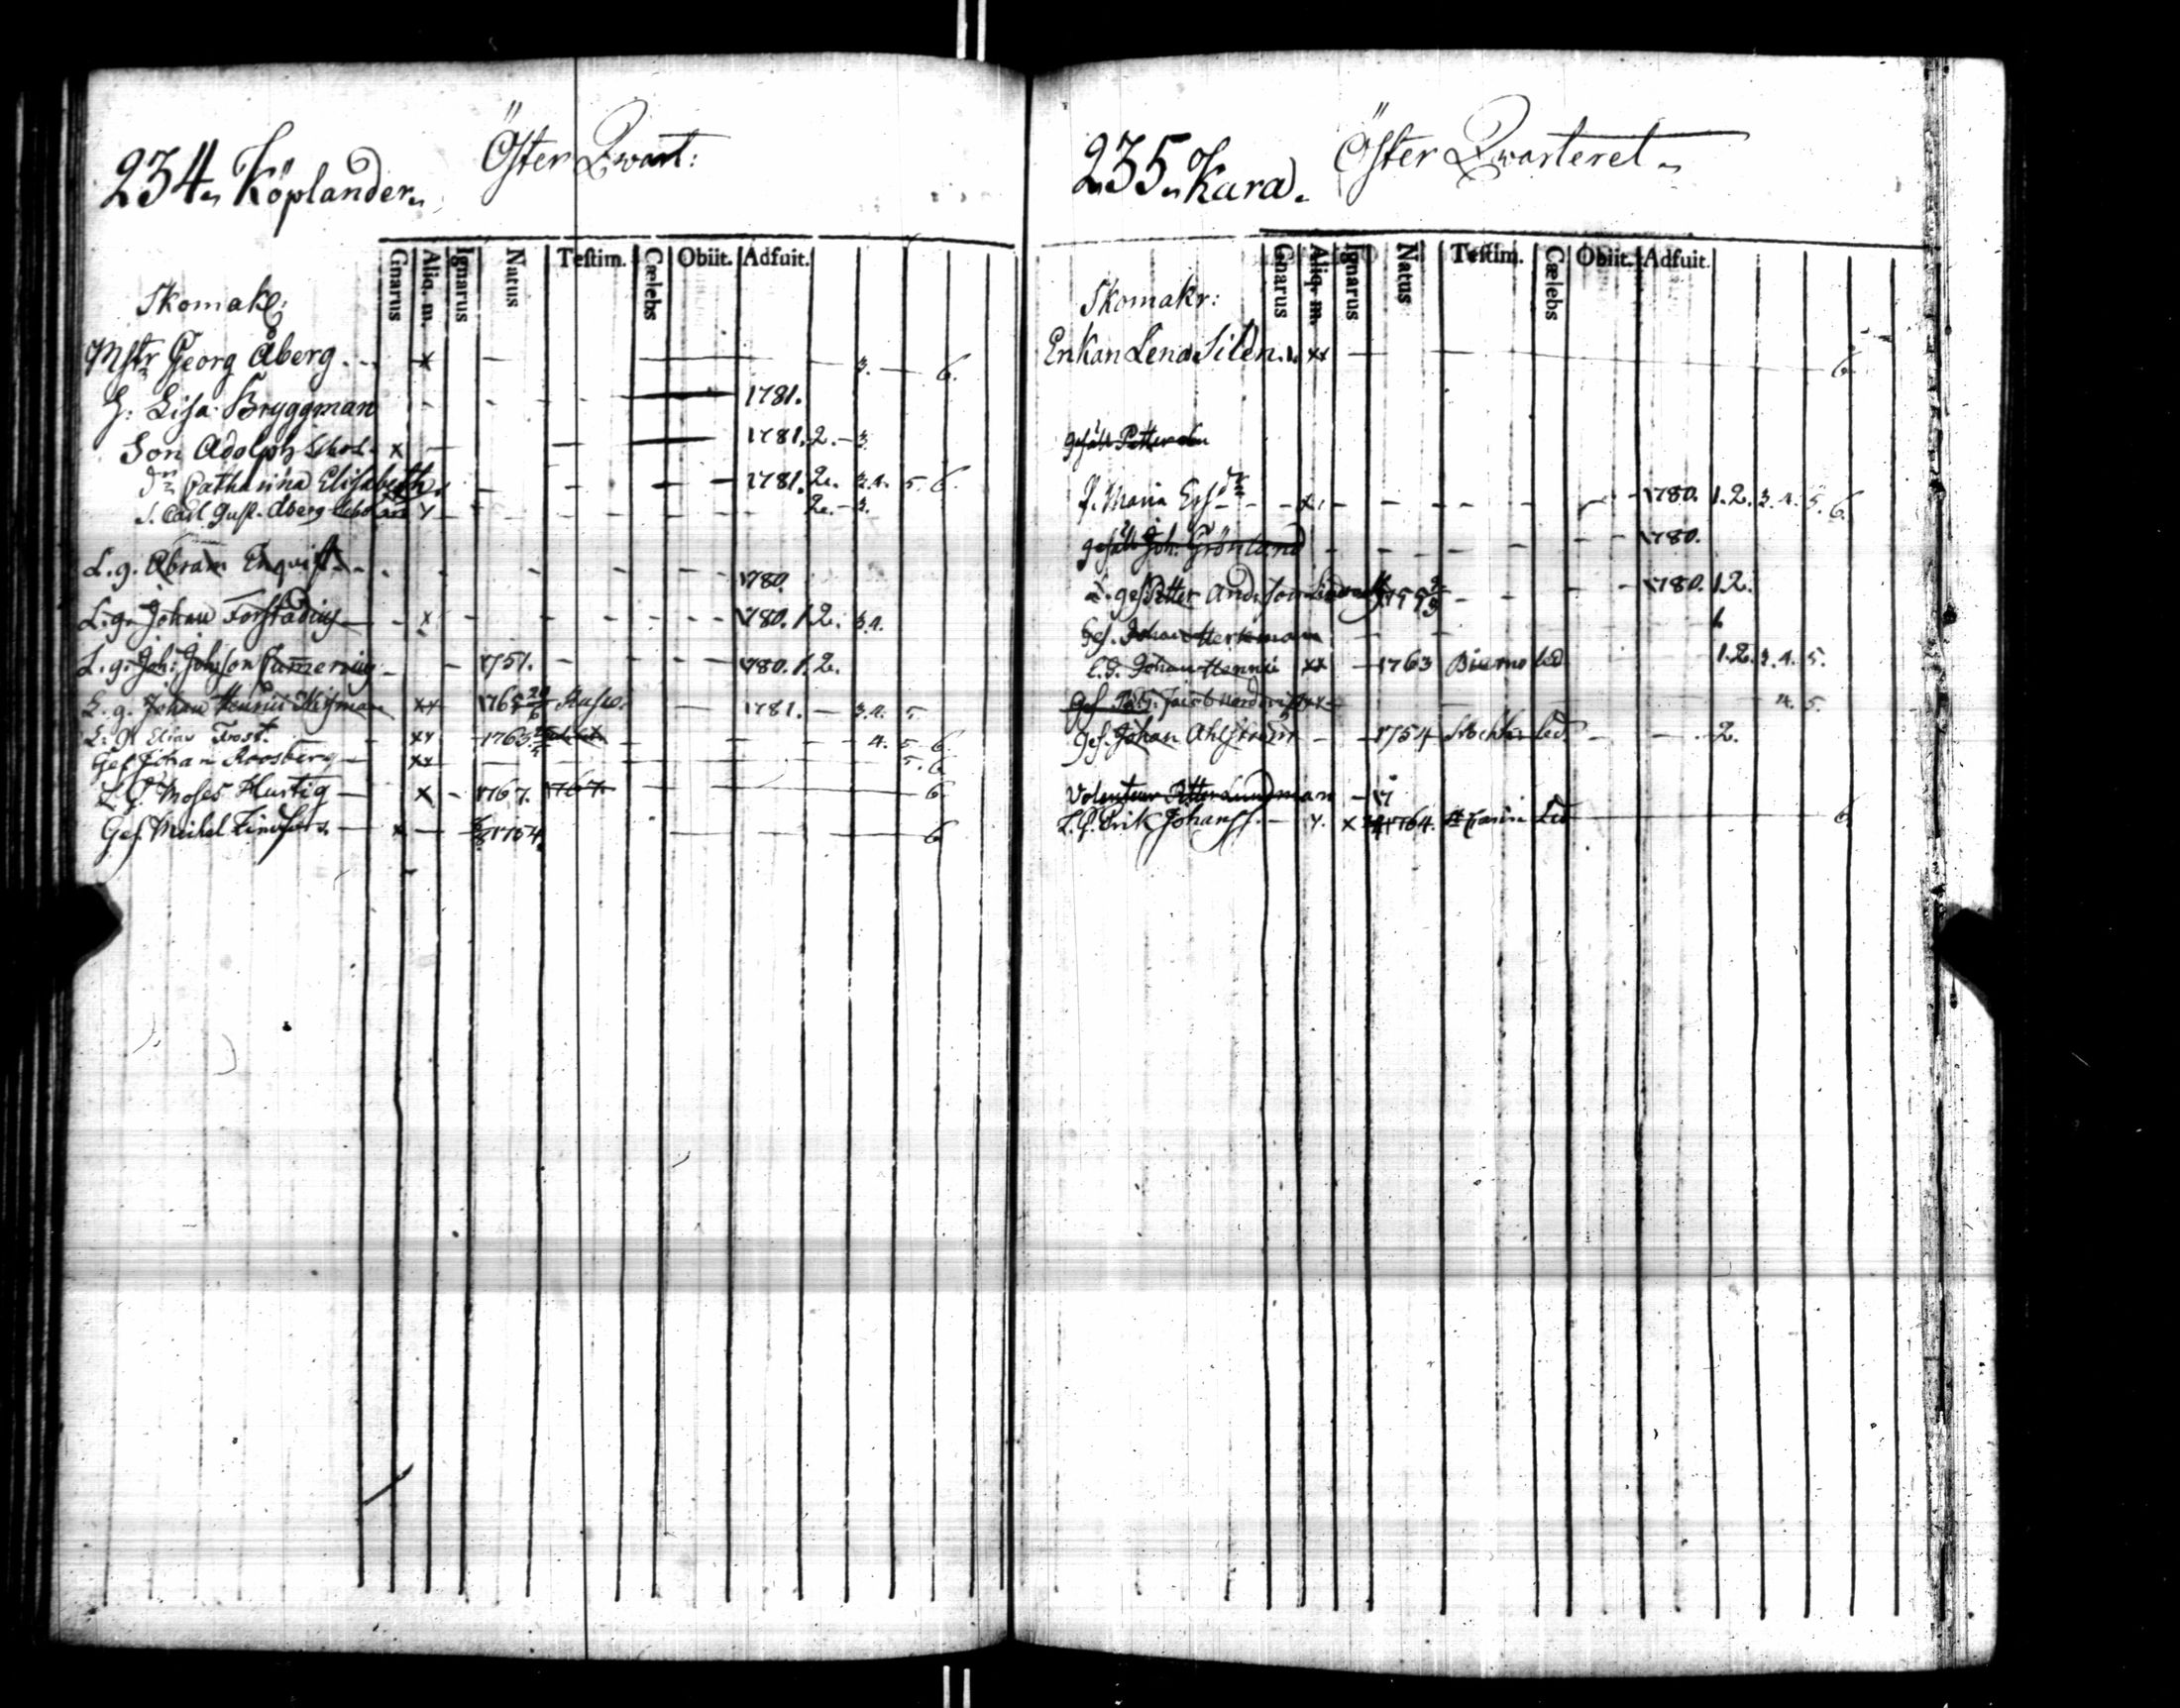 234. Köplander. Öster Qwart:
Gnarus Aliq. m. Ignarus Natus Testim. Cælebs Obiit. Adfuit.
Skomak:
Mstr Georg Åberg x 3. 6.
H: Lisa Bryggman 1781.
Son Adolph x 1781. 2. 3.
Catharina Elisabeth 1781. 2. 3.4. 5. 6.
S. Carl Gust. Åberg 2. 3.
L. g. Abram Enqvist 1780
L. g. Johan Forstadius x 1780. 1. 2. 3.4.
L. g. Joh: Johsson 1751. 1780. 1. 2.
L. g. Johan Henric xx 1781. 3.4. 5.
L. g. Elias Frost xx 1763 4. 5. 6.
Gef. Johan Roosberg xx 5. 6.
L. G. Moses Hurtig x 1767. 1767. 6
Gef. Michel Lindfors x 1754 6
235. Kara. Öster Qwarteret.
Gnarus Aliq. m. Ignarus Natus Testim. Cælebs Obiit. Adfuit.
Skomakr:
Enkan Lena Silen xx 6
gesäll Petter
P. Maria x 1780. 1. 2. 3. 4. 5. 6.
gesäll Joh: Grönlund 1780.
Petter Anderson 1780. 1. 2.
Ges. Johan 1.
L. G. Johan Henric xx 1763 Bierno led 1. 2. 3. 4. 5.
Gef. Jacob xx 4. 5.
Ges. Johan Ahlström 1754 led. 2.
Volenteur Petter Lundman 17
L. G. Erik Johanss. x 1764. St Carin Led 6.